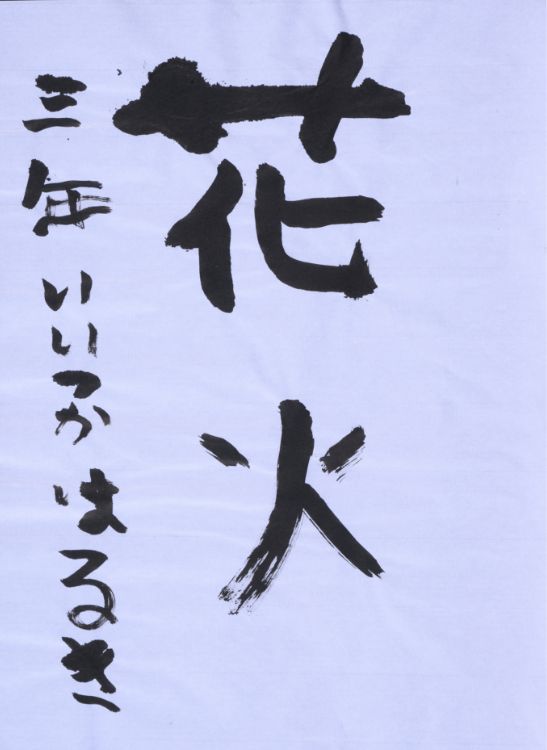 花火
三年 いいづか はるき